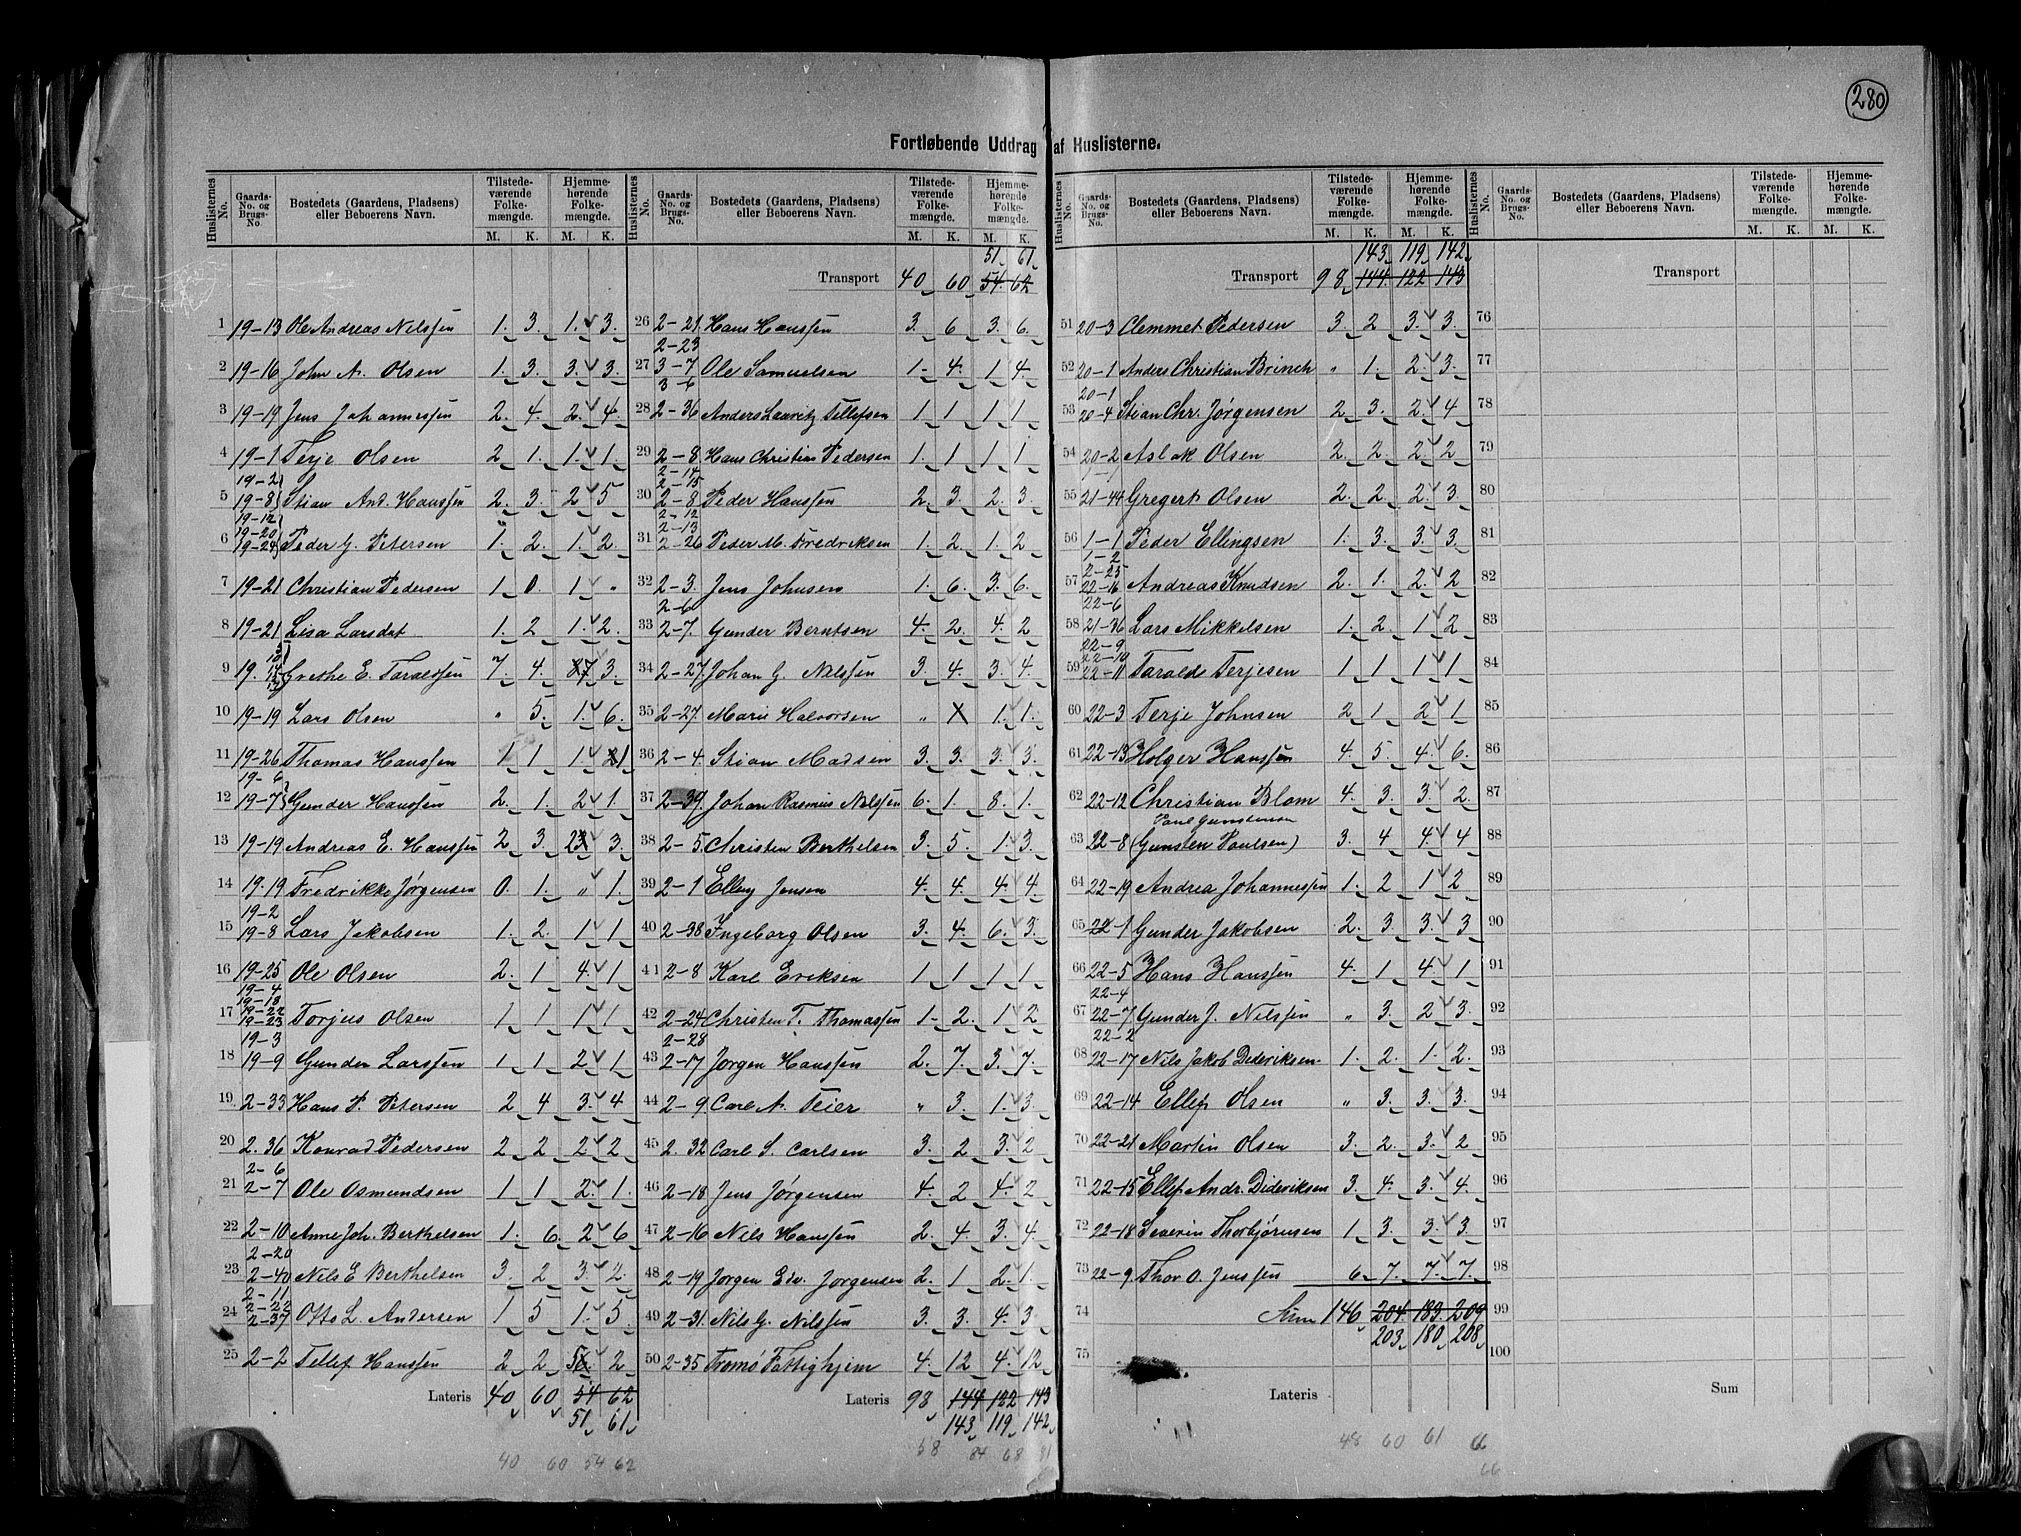 280
Fortløbende Uddrag af Huslisterne.
Huslisternes No. | Gaards-No. og Brugs-No. | Bostedets (Gaardens, Pladsens) eller Beboerens Navn. | Tilstedeværende Folkemængde. M. K. | Hjemmehørende Folkemængde. M. K.
1 19-13 Ole Andreas Nilssen 1. 3. 1. 3.
2 19-16 John A. Olsen 1. 3. 3. 3.
3 19-19 Jens Johannessen 2. 4. 2. 4.
4 19-1 Terje Olsen 2 1. 1. 1.
19-2
5 19-8 Stian And. Hanssen 2. 3. 2 5
19-12
19-20
6 19-24 Peder G. Petersen 1. 2. 1. 2.
7 19-21 Christian Pedersen 1 0. 1 "
8 19-21 Lisa Larsdat 1. 2 1. 2.
9 19. Grethe E. Taraldsen 7. 4. 7 3.
10 19-19 Lars Olsen " 5. 1. 6.
11 19-26 Thomas Hanssen 1 1 1. 1
19-6
12 19-7 Gunder Hanssen 2. 1. 2 1.
13 19-19 Andreas E. Hanssen 2 3. 2 3.
14 19.19 Fredrikke Jørgensen 0. 1. " 1.
19-2
15 19-8 Lars Jakobsen 1. 2. 1 1
16 19-25 Ole Olsen 2. 1 4. 1
19-4
19-18
19-22
17 19-23 Torjus Olsen 1 1 1 1.
19-3
18 19-9 Gunder Larssen 1 1 2 1
19 2-33 Hans P. Petersen 2 4 3. 4
20 2.36 Konrad Pedersen 2 2 2 2
2-6
21 2-7 Ole Osmundsen 1 1 2. 1.
22 2-10 Anne Joh. Berthelsen 1. 6. 2 6
2-20
23 2-40 Nils E Berthelsen 3. 2 3. 2.
2-11
2-22
24 2-37 Otto L. Andersen 1 5 1. 5.
25 2-2 Tellef Hanssen 2 2 5 2
Lateris 40 60 54 62
51 61
40 60 54 62
Huslisternes No. | Gaards-No. og Brugs-No. | Bostedets (Gaardens, Pladsens) eller Beboerens Navn. | Tilstedeværende Folkemængde. M. K. | Hjemmehørende Folkemængde. M. K.
51 61
Transport 40 60 54 62
26 2-21 Hans Hanssen 3. 6 3. 6.
2-23
27 3-7 Ole Samuelsen 1 4. 1 4.
3-6
28 2-36 Anders Lauritz Tellefsen 1 1 1 1
29 2-8 Hans Christian Pedersen 1. 1 1 1
2-14
2-15
30 2-8 Peder Hanssen 2 3. 2. 3.
2-12
2-13
31 2-26 Peder M. Fredriksen 1. 2. 1. 2
32 2-3. Jens Johnsen 1. 6. 3. 6.
2-6
33 2-7. Gunder Berntsen 4. 2. 4. 2
34 2-27. Johan G. Nilssen 3. 4. 3. 4.
35 2-27. Marie Halvorsen " 1. 1.
36 2-4. Stian Madsen 3. 3. 3. 3.
37 2-39. Johan Rasmus Nilssen 6. 1. 8. 1.
38 2-5. Christen Berthelsen 3. 5. 1. 3.
39 2-1 Elling Jensen 4. 4. 4. 4
40 2-38 Ingeborg Olsen 3. 4. 6. 3.
41 2-8 Karl Eriksen 1 1 1 1
42 2-24 Christen T. Thomassen 1. 2. 1 2
2-28
43 2-17 Jørgen Hanssen 2. 7. 3. 7.
44 2-9 Carl A. Feier " 3. 1. 3.
45 2.32 Carl S. Carlsen 3. 2 3. 2
46 2-18 Jens Jørgensen 4. 2 4. 2
47 2-16 Nils Hanssen 2. 4. 3 4.
48 2-19 Jørgen Edv. Jørgensen 2. 1 2. 1.
49 2-31. Nils G. Nilssen 3. 3. 4. 3
50 2-35 Tromø Fattighjem 4. 12 4. 12
Lateris 98 144 122 143
143 119 142
58 84 68 81
Huslisternes No. | Gaards-No. og Brugs-No. | Bostedets (Gaardens, Pladsens) eller Beboerens Navn. | Tilstedeværende Folkemængde. M. K. | Hjemmehørende Folkemængde. M. K.
143 119 142
Transport 98 144 122 143
51 20-3 Clemmet Pedersen 3. 2 3. 3.
52 20-1 Anders Christian Brinch " 1. 2. 3.
20-1
53 20-4 Stian Chr. Jørgensen 2 3. 2. 4
54 20-2 Aslak Olsen 2. 2. 2. 2
55 21-44 Gregert Olsen 2. 2. 2. 3.
56 1-1 Peder Ellingsen 1. 3. 3. 3
1-2
2-25
57 22-16 Andreas Knudsen 2. 1. 2. 2
22-6
58 21-36 Lars Mikkelsen 1. 2. 1 2
22-9
22-10
59 22-11 Taralde Terjesen 1 1 1 1
60 22-3 Terje Johnsen 2 1 2 1
61 22-13 Holger Hanssen 4. 5 4. 6.
62 22-12 Christian Blom 4. 3. 3. 2.
Paul Gunstensen
63 22-8 (Gunsten Paulsen) 3. 4 4. 4
64 22-19 Andrea Johannessen 1. 2 1 2
65 22-1 Gunder Jakobsen 2. 3. 3. 3
66 22-5 Hans Hanssen 4. 1 4. 1
22-4
67 22-7 Gunder J. Nilssen " 3. 2 3.
22-2
68 22-17 Nils Jakob Dideriksen 1. 2. 1. 2.
69 22-14 Ellef Olsen " 3. 3. 3.
70 22-21 Martin Olsen 3. 2. 3. 2
71 22-15 Ellef Andr. Dideriksen 3. 4. 3. 4.
72 22-18 Severin Thorbjørnsen 1 3. 3. 3.
73 22-9 Thor O. Jenssen 6. 7. 7. 7.
74 Sum 146 204 183 209
203 180 208
75
Lateris
48 60 61 66
66
Huslisternes No. | Gaards-No. og Brugs-No. | Bostedets (Gaardens, Pladsens) eller Beboerens Navn. | Tilstedeværende Folkemængde. M. K. | Hjemmehørende Folkemængde. M. K.
Transport
76
77
78
79
80
81
82
83
84
85
86
87
88
89
90
91
92
93
94
95
96
97
98
99
100
Sum